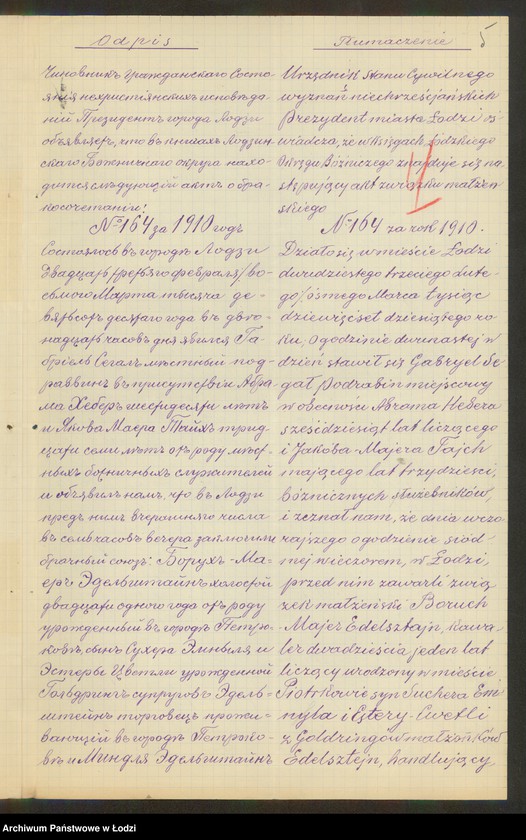 5
Odpis
Чиновникъ гражданскаго Состо-
янія нехристіянскихъ исповѣда-
ній Президентъ города Лодзи
объявляетъ, что въ книгахъ Лодзин-
скаго Божничнаго округа нахо-
дится слѣдующій актъ о бра-
косочетаніи:
№ 164 за 1910 годъ
Состоялось въ городѣ Лодзи
двадцать третьяго февраля/во-
сьмого Марта тысяча де-
вятьсотъ десятаго года въ двѣ-
надцать часовъ дня явился Га-
бріель Сегалъ мѣстный под-
раввинъ въ присутствіи Абра-
ма Хеберъ шестидесяти лѣтъ
и Якова Маера Тайхъ трид-
цати семи лѣтъ отъ роду мѣст-
ныхъ божничныхъ служителей
и объявилъ намъ, что въ Лодзи
предъ нимъ вчерашняго числа
въ семь часовъ вечера заключили
брачный союзъ: Борухъ-Ма-
еръ Эдельштайнъ холостой
двадцати одного года отъ роду
урожденный въ городѣ Петро-
ковѣ, сынъ Сухера Эмныля и
Эстеры Цветли урожденной
Гольдрингъ супруговъ Эдель-
штейнъ торговецъ прожи-
вающій въ городѣ Петроко-
вѣ и Миндля Эдельштайнъ
Tłumaczenie
Urzędnik Stanu Cywilnego
wyznań niechrześcjańskich
Prezydent miasta Łodzi oś-
wiadcza, że w księgach Łódzkiego
Okręgu Bóżniczego znajduje się na-
stępujący akt związku małżeń-
skiego
№ 164 za rok 1910.
Działo się w mieście Łodzi
dwudziestego trzeciego Lute-
go/ósmego Marca tysiąc
dziewięćset dziesiątego ro-
ku, o godzinie dwunastej w
dzień stawił się Gabryel Se-
gał Podrabin miejscowy
w obecności Abrama Hebera
sześćdziesiąt lat liczącego
i Jakóba-Majera Tajch
mającego lat trzydzieści,
bóżnicznych służebników,
i zeznał nam, że dnia wczo-
rajszego o godzienie siód-
mej wieczorem, w Łodzi,
przed nim zawarli zwią-
zek małżeński Boruch
-Majer Edelsztajn, kawa-
ler dwadzieścia jeden lat
liczący urodzony w mieście
Piotrkowie syn Suchera Em-
nyla i Estery-Cwetli
z Goldringów małżonków
Edelsztejn, handlujący
Archiwum Państwowe w Łodzi